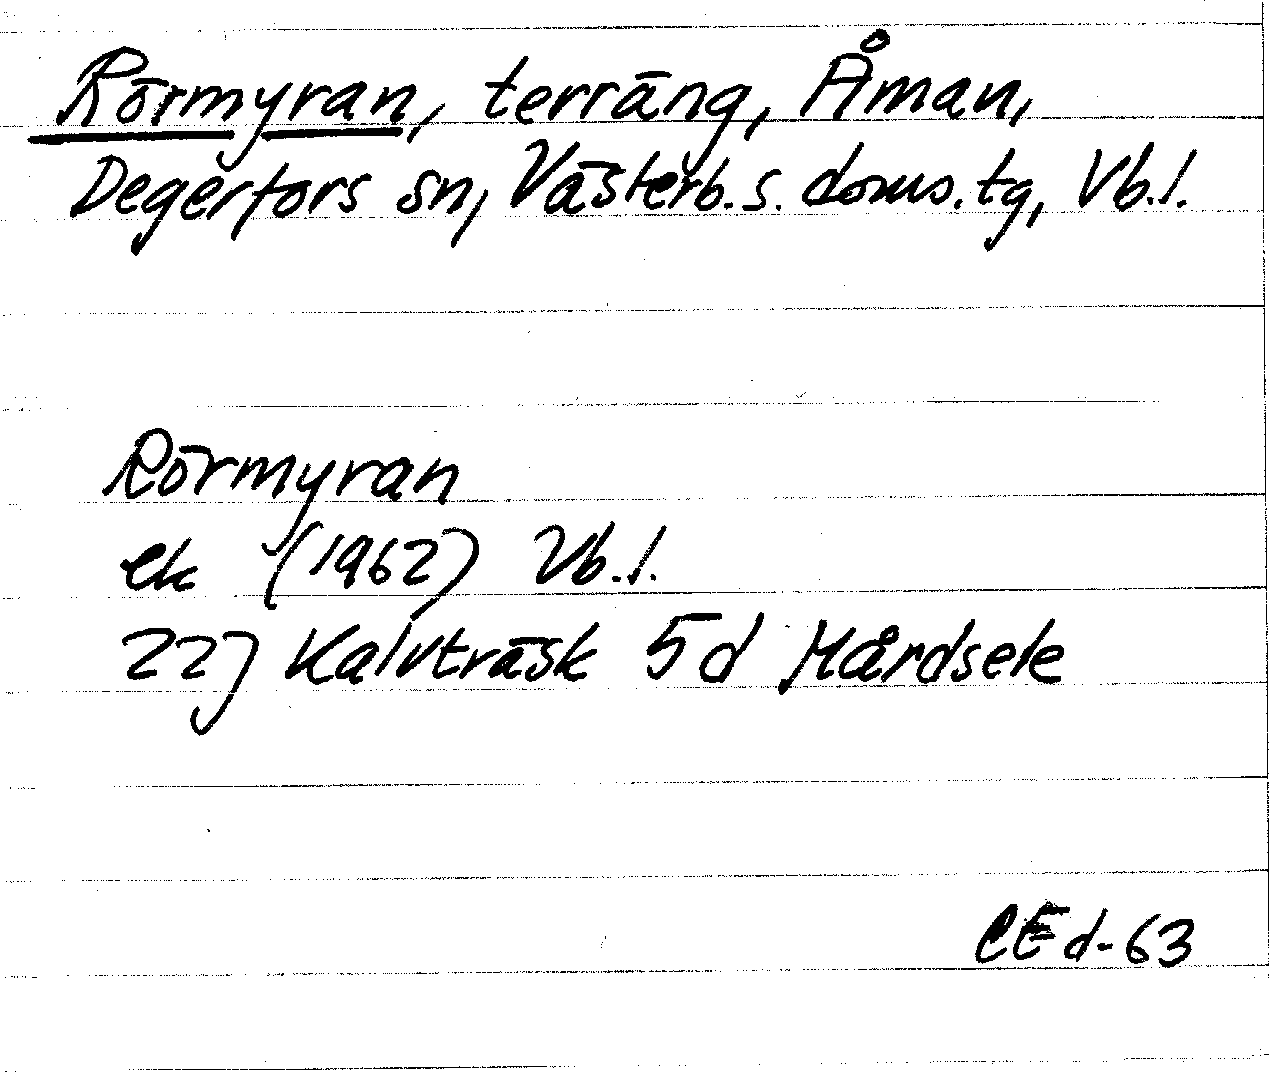 Rörmyran, terräng, Åman,
Degerfors sn, Västerb. s. doms. tg, Vb. l.
Rörmyran
ek (1962) Vb. l.
22J Kalvträsk 5d Mårdsele
CEd-63